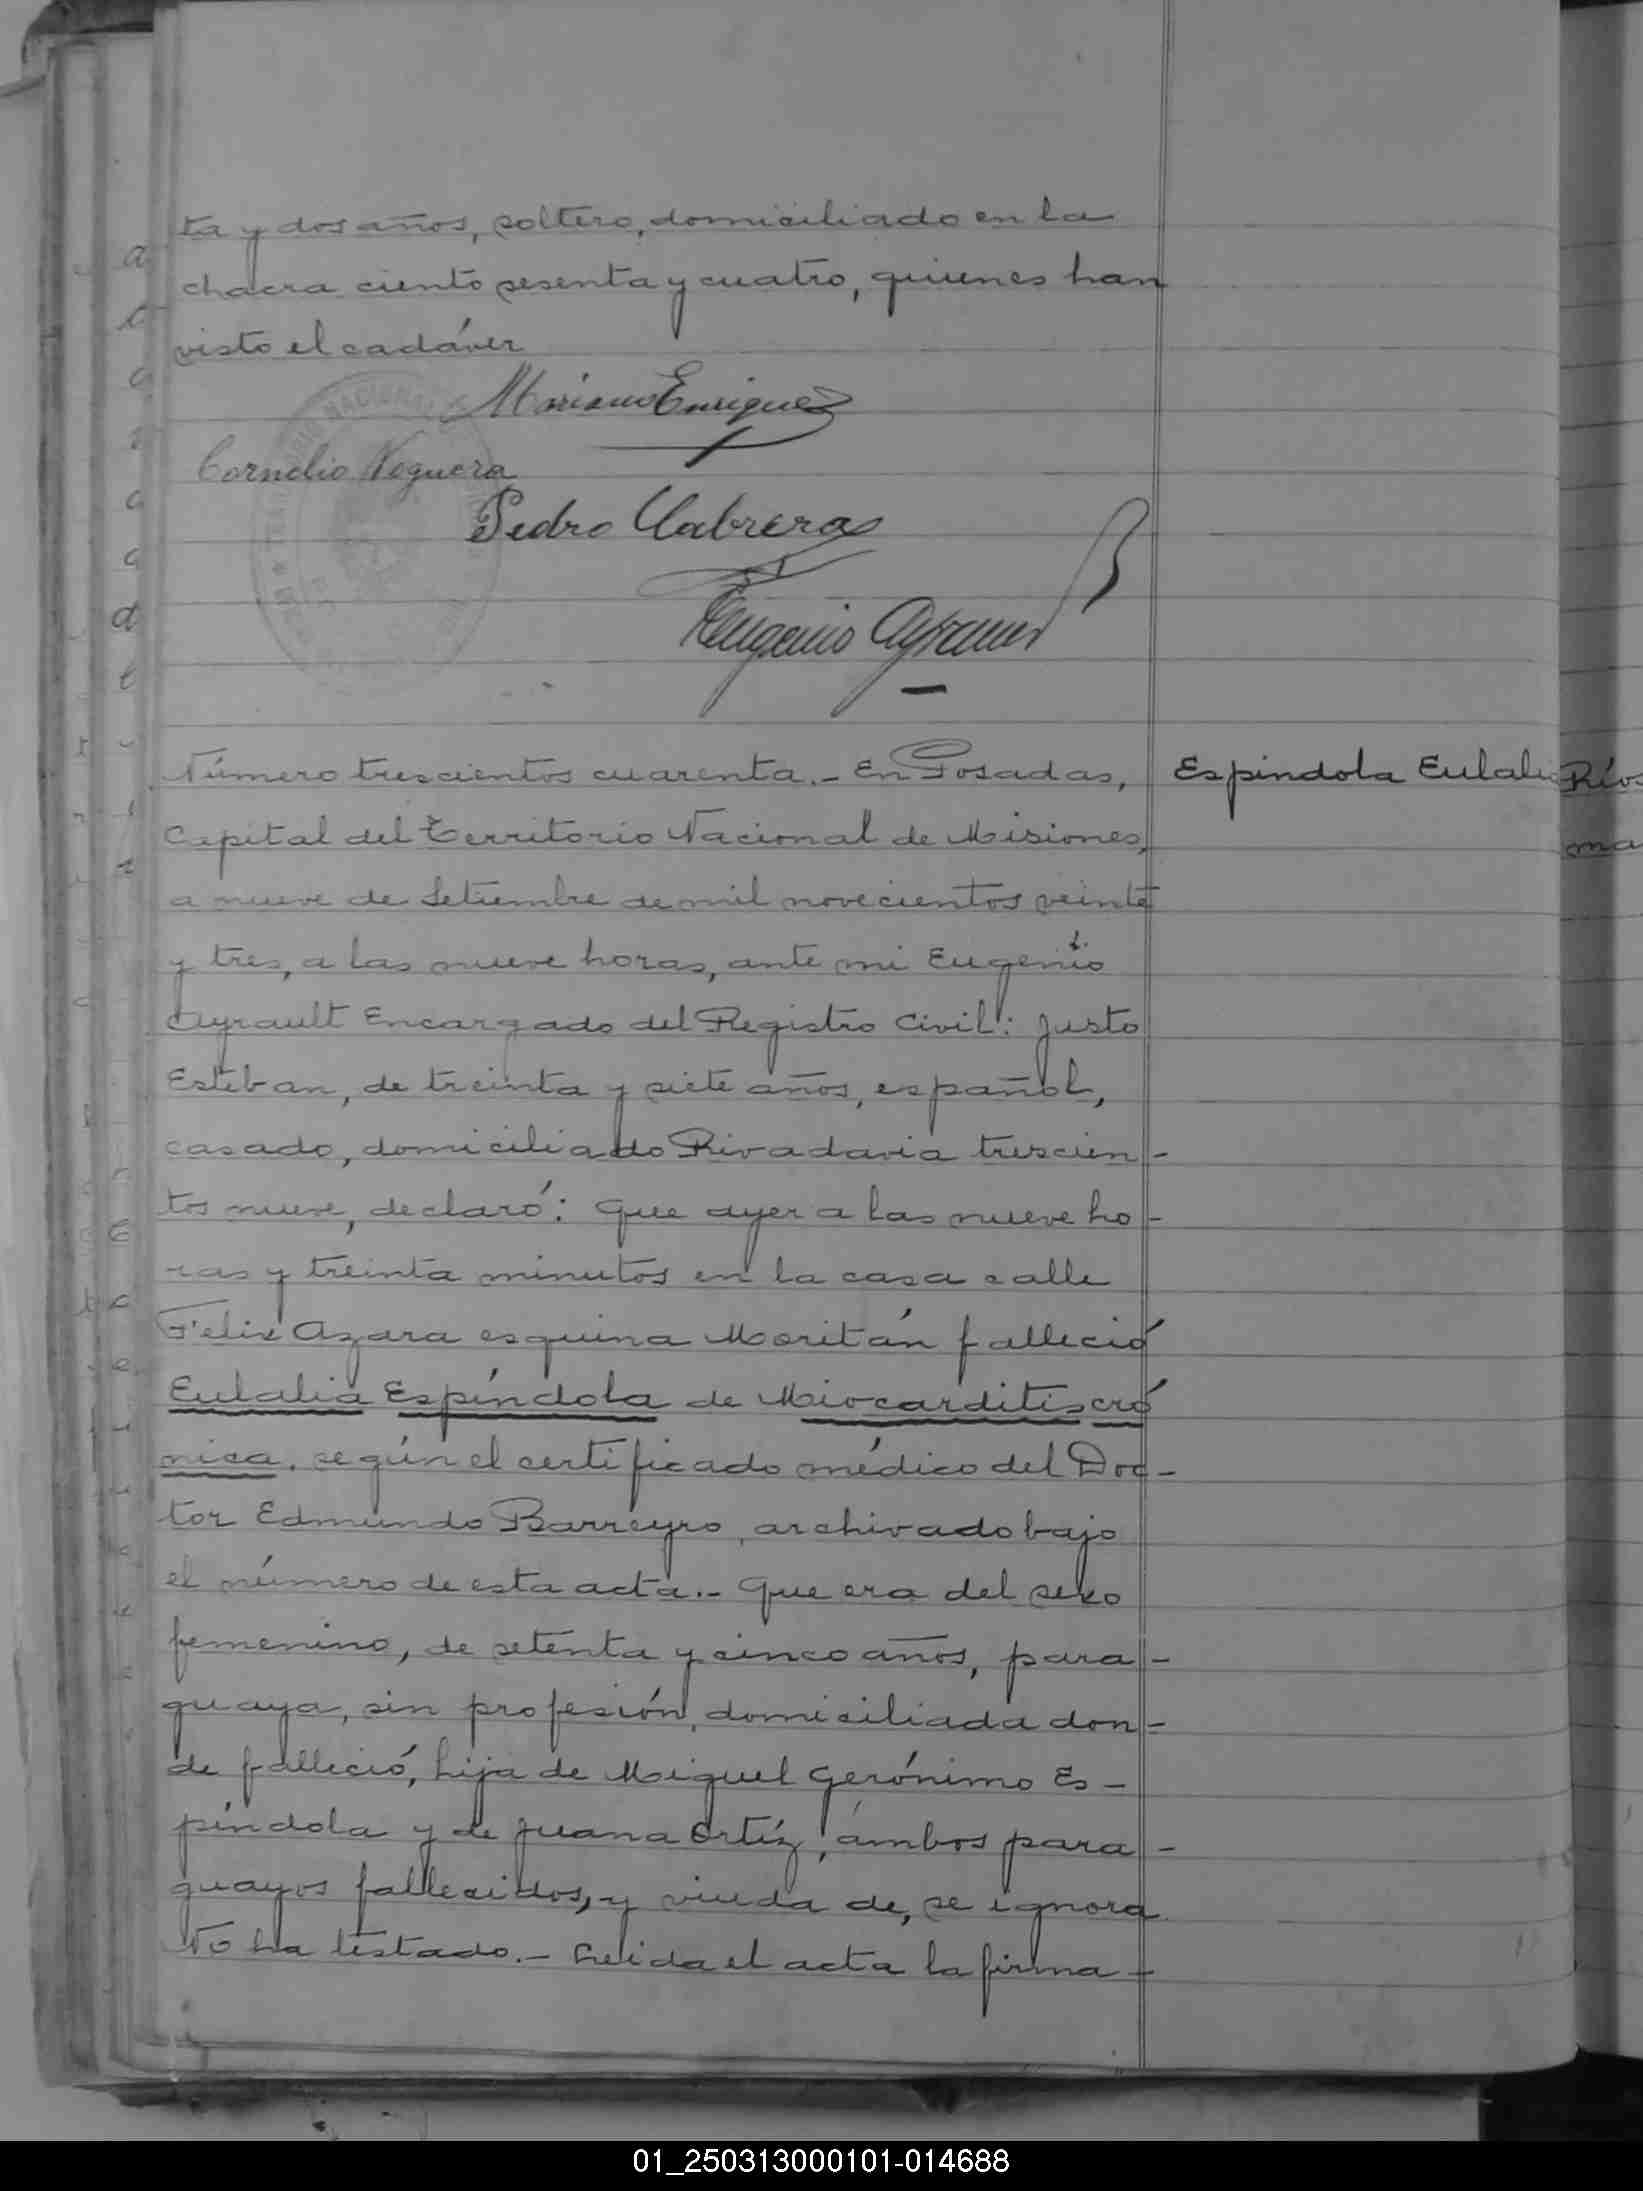 ta y dos años, soltero, domiciliado en la
chacra ciento sesenta y cuatro, quienes han
visto el cadáver
Mariano Enriquez
Cornelio Noguera
Pedro Cabrera
Eugenio Ayrault
Número trescientos cuarenta.- En Posadas,
Espindola Eulalia
Capital del Territorio Nacional de Misiones,
a nueve de Setiembre de mil novecientos veinte
y tres, a las nueve horas, ante mi Eugenio
Ayrault Encargado del Registro Civil: Justo
Esteban, de treinta y siete años, español,
casado, domiciliado Rivadavia trescien-
tos nueve, declaró: Que ayer a las nueve ho-
ras y treinta minutos en la casa calle
Felix Azara esquina Moritán falleció
Eulalia Espíndola de Miocarditis cró
nica, según el certificado médico del Doc-
tor Edmundo Barreyro, archivado bajo
el número de esta acta.- Que era del sexo
femenino, de setenta y cinco años, para-
guaya, sin profesión, domiciliada don-
de falleció, hija de Miguel Gerónimo Es-
píndola y de Juana Ortíz, ámbos para-
guayos fallecidos, y viuda de, se ignora
No ha testado.- Leida el acta la firma-
Ríos
ma
01_250313000101-014688